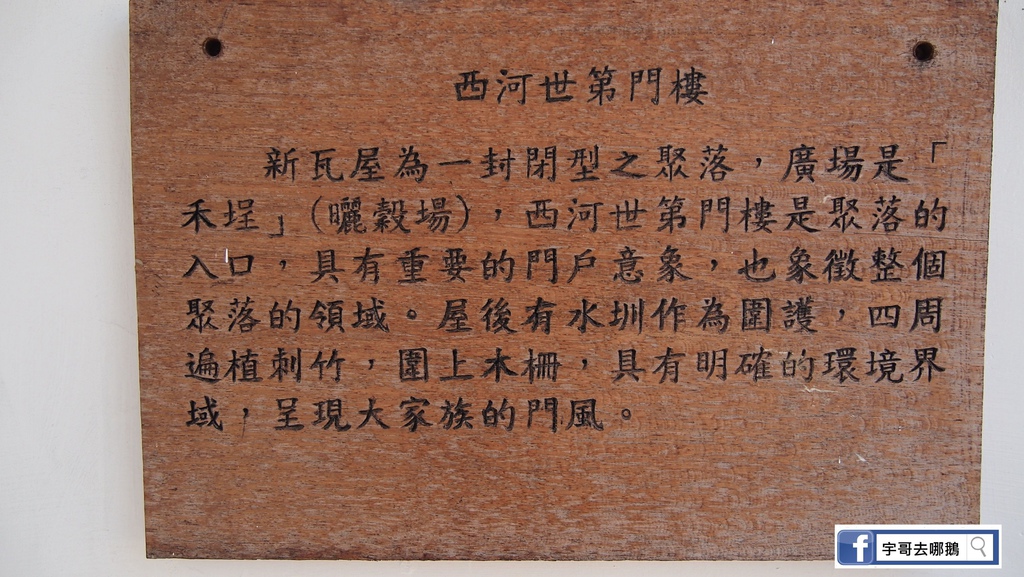 西河世第門樓
新瓦屋為一封閉型之聚落，廣場是「
禾埕」（曬穀場），西河世第門樓是聚落的
入口，具有重要的門戶意象，也象徵整個
聚落的領域。屋後有水圳作為圍護，四周
遍植刺竹，圍上木柵，具有明確的環境界
域，呈現大家族的門風。
f 宇哥去哪鵝